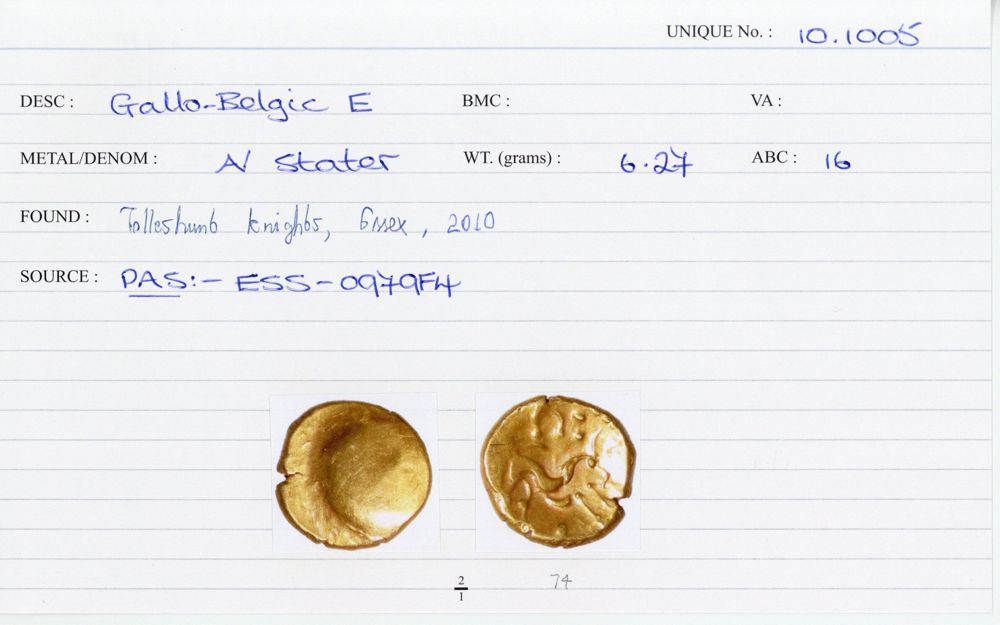 UNIQUE No. : 10.1005
DESC : Gallo-Belgic E BMC : VA :
METAL/DENOM : A/ Stater WT. (grams) : 6.27 ABC : 16
FOUND : Tolleshunt Knights, Essex, 2010
SOURCE : PAS:- ESS-0979F4
2
1
74